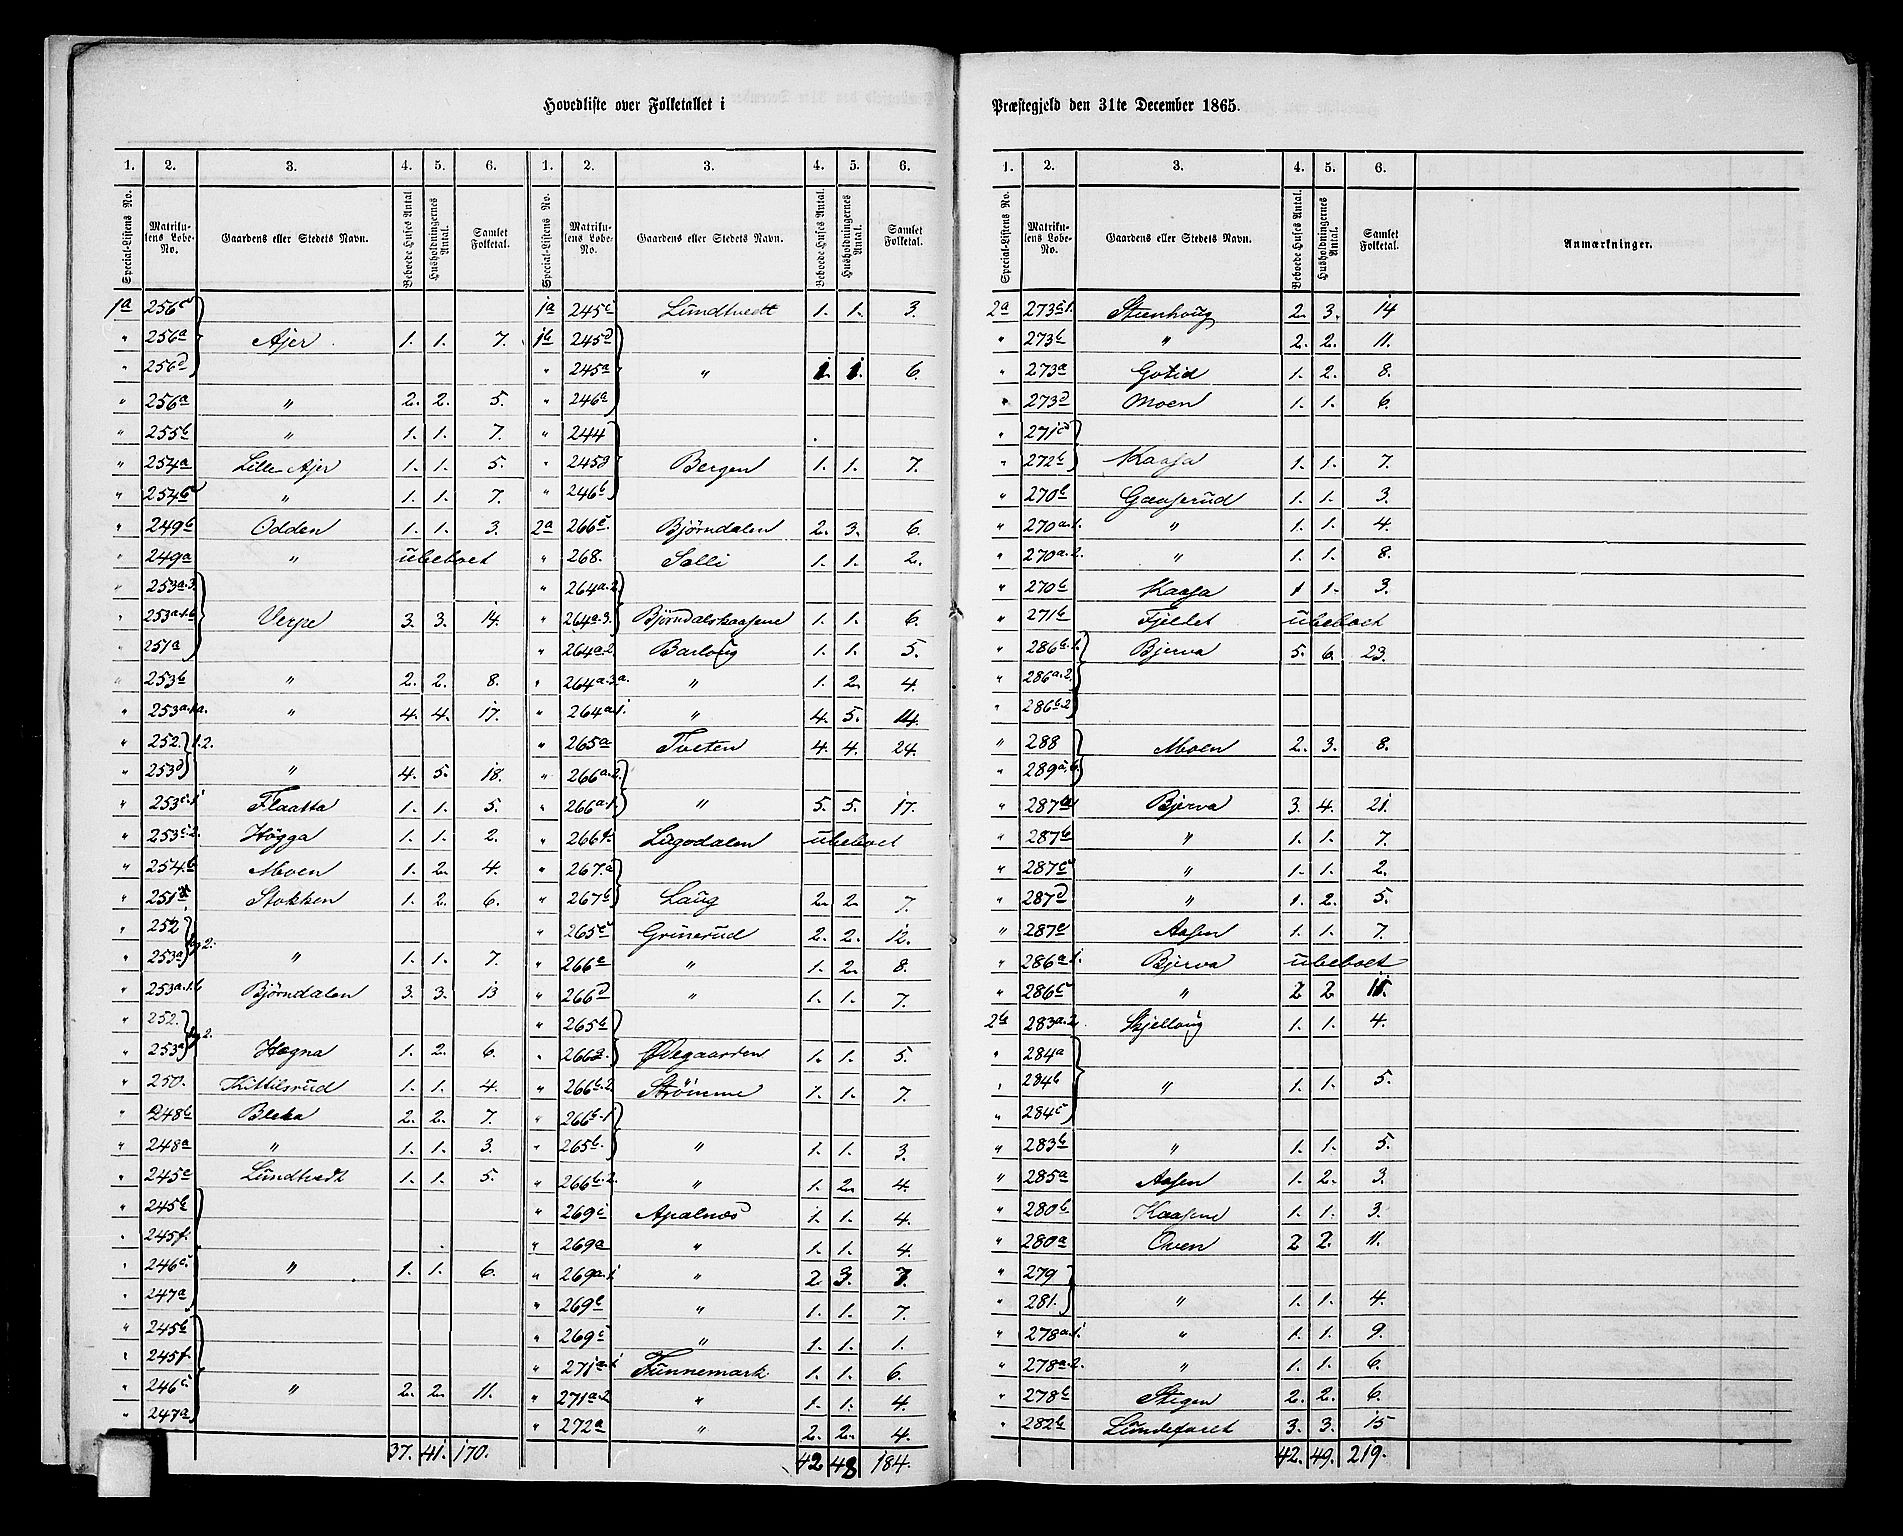 Hovedliste over Folketallet i Præstegjeld den 31te December 1865.
1. 2. 3. 4. 5. 6. 1. 2. 3. 4. 5. 6.
Special-Listens No. Matrikulens Løbe-No. Gaardens eller Stedets Navn. Beboede Huses Antal Husholdningernes Antal. Samlet Folketal. Special-Listens No. Matrikulens Løbe-No. Gaardens eller Stedets Navn. Beboede Huses Antal. Husholdningernes Antal. Samlet Folketal.
1a 256c
" 256a Ajer 1. 1. 7.
" 256d
" 256a " 2. 2. 5.
" 255b " 1. 1. 7.
" 254a Lille Ajer 1. 1. 5.
" 254c " 1. 1. 7.
" 249b Odden 1. 1. 3.
" 249a " ubeboet
" 253a.3.
" 253a.1.b Verpe 3. 3. 14.
" 251a
" 253b " 2. 2. 8.
" 253a.1a. " 4. 4. 17.
" 252. 1.2.
" 253d " 4. 5. 18.
" 253c.1 Flaatta 1. 1. 5.
" 253c.2. Høgga 1. 1. 2.
" 254.b Moen 1. 2. 4.
" 251 Stokken 1. 2. 6.
" 252
" 253a " 1. 1. 7.
" 253a.1.b Bjørndalen 3. 3. 13
" 252.
" 253a Høgna 1. 2. 6.
" 250. Kittilsrud 1. 1. 4.
" 248b Bleka 2. 2. 7.
" 248a " 1. 1. 3.
" 245e Lundtvedt 1. 1. 5.
" 245b
" 245f.
" 246c " 1. 1. 6.
" 247a
" 245b
" 245f.
" 246c " 2. 2. 11.
" 247a
37. 41. 170.
1a 245c Lundtvedt 1. 1. 3.
1b 245d
" 245a " 1. 1. 6.
" 246a
" 244
" 245g Bergen 1. 1. 7.
" 246b
2a 266c. Bjørndalen 2. 3. 6.
" 268. Solli 1. 1. 2.
" 264a.2.
" 264a.3. Bjørndalskaasene 1. 1. 6.
" 264a.2 Barloug 1. 1. 5.
" 264a.3a. " 1. 2. 4.
" 264a.1. " 4. 5. 14.
" 265a Tveten 4. 4. 24.
" 266a.2.
" 266a.1 " 5. 5. 17.
" 266f. Lagodalen ubeboet
" 267.a
" 267b Laug 2. 2. 7.
" 265c Grinerud 2. 2. 12.
" 266a " 1. 2. 8.
" 266d " 1. 1. 7.
" 265b
" 266g. Ødegaarden 1. 1. 5.
" 266b.2 Strømme 1. 1. 7.
" 266b.1
" 265b. " 1. 1. 3.
" 266b.2. " 1. 2. 4.
" 269c Apalnæs 1. 1. 4.
" 269a " 1. 1. 4.
" 269a.1 " 2. 3. 7.
" 269b " 1. 1. 7.
" 269c " 1. 1. 1.
" 271a.1 Funnemark 1. 1. 6.
" 271a.2 " 1. 1. 4.
" 272a " 2. 2. 4.
42 48 184.
1. 2. 3. 4. 5. 6.
Special-Listens No. Matrikulens Løbe-No. Gaardens eller Stedets Navn. Beboede Huses Antal. Husholdningernes Antal. Samlet Folketal. Anmærkninger.
2a 273c1. Stenhoug 2. 3. 14
" 273b " 2. 2. 11.
" 273a Gotid 1. 2. 8.
" 273d Moen 1. 1. 6.
" 271c
" 272b Kaasa 1. 1. 7.
" 270b Gaaserud 1. 1. 3.
" 270a.1. " 1. 1. 4.
" 270a.2. " 1. 1. 8.
" 270b Kaasa 1 1. 3.
" 271b Fjellet ubeboet
" 286b.1. Bjerva 5. 6. 23.
" 286a.2.
" 286b.2
" 288 Moen 2. 3. 8.
" 289a.b.
" 287a1 Bjerva 3. 4. 21.
" 287b " 1. 1. 7.
" 287c " 1. 1. 2.
" 287d " 1. 2. 5.
" 287e Aasen 1. 1. 7.
" 286a.1. Bjerva ubeboet
" 286c " 2 2 11.
2b 283a.2. Skjelloug 1. 1. 4.
" 284a
" 284b " 1. 1. 5.
" 284c
" 283b " 1. 1. 5.
" 285a Aasen 1. 2. 3.
" 280b Kaasene 1. 1. 3.
" 280a Oven 2 2. 11.
" 279
" 281. " 1. 1. 4.
" 278a.1. " 1. 1. 9.
" 278a.2. " 1. 1. 6.
" 278b Stigen 2. 2. 6.
" 282b Lundefaret 3. 3. 15
42. 49. 219.